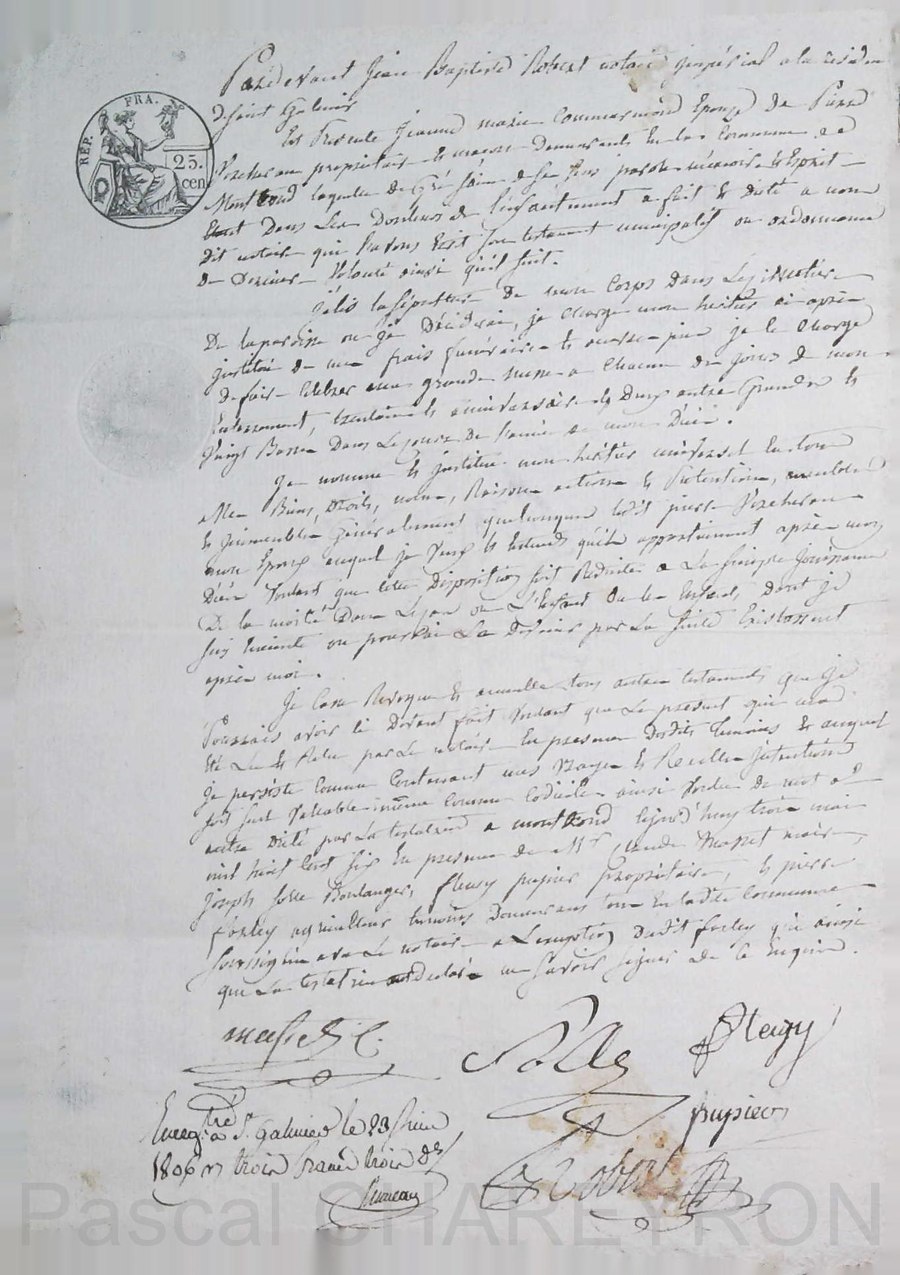 RÉP. FRA.
25.
cen
Pardevant Jean Baptiste Robert notaire impérial a la residen
de saint Galmier
Est Presente Jeanne marie Commarmond Epouze de Pierre
propriétaire et maçon demeurants En la Commune de
Montrond laquelle de Gré Saine de Ses Sens parole mémoire et Esprit
Etant Dans Les Douleurs de L'enfantement a fait et dicté a nous
dit notaire qui L'avons Ecrit Son testament nuncupatif ou ordonnance
de Derniere Volonté ainsi qu'il suit.
J'élis la Sépulture De mon Corps Dans Le cimetière
De la paroisse ou je Décéderai, je charge mon héritier ci après
institué de mes frais funéraires et outre ce je le charge
de faire Célébrer une grande messe a Chacun des jours de mon
Enterrement, trentaine et anniversaire et Deux autres Grandes et
Vingt Basses Dans Le cours de l'année de mon Décès.
Je nomme et institue mon héritier universel En tous
Mes Biens, Droits, noms, Raisons actions et Prétentions, meubles
et immeubles Généralement quelconques ledit pierre
mon Epoux auquel je veux et Entends qu'ils appartiennent après mon
Décès Voulant que cette Disposition soit Réduite a La Simple jouissance
de la moitié Dans Le cas ou L'Enfant ou les Enfants, dont je
suis Enceinte ou pourrai La Devenir par La Suite Existassent
après moi.
Je Casse Révoque et annulle tous autres testaments que je
Pourrais avoir ci Devant fait Voulant que Le présent qui m'a
été Lu et Relu par Le notaire En presence desdits temoins et auquel
je persiste comme Contenant mes Vrayes et Réelles intentions
soit Seul Valable même Comme Codicile ainsi Voulu de mot a
autre Dicté par La testatrice a montrond Cejourd'huy trois mai
mil huit Cent Six En presence de Mr Claude Masset maire,
joseph Solle Boulanger, fleury pupier Propriétaire, et pierre
forley agriculteur temoins Demeurans tous En ladite Commune
Soussignés avec Le notaire a L'exception dudit forley qui ainsi
que La testatrice ont déclaré ne Savoir Signer De ce Enquis.
masset C.
Solle
fleury
pupier
Robert
Enregtré a St Galmier le 23 Juin
1806 Rs trois francs trois ds
Pascal CHAREYRON